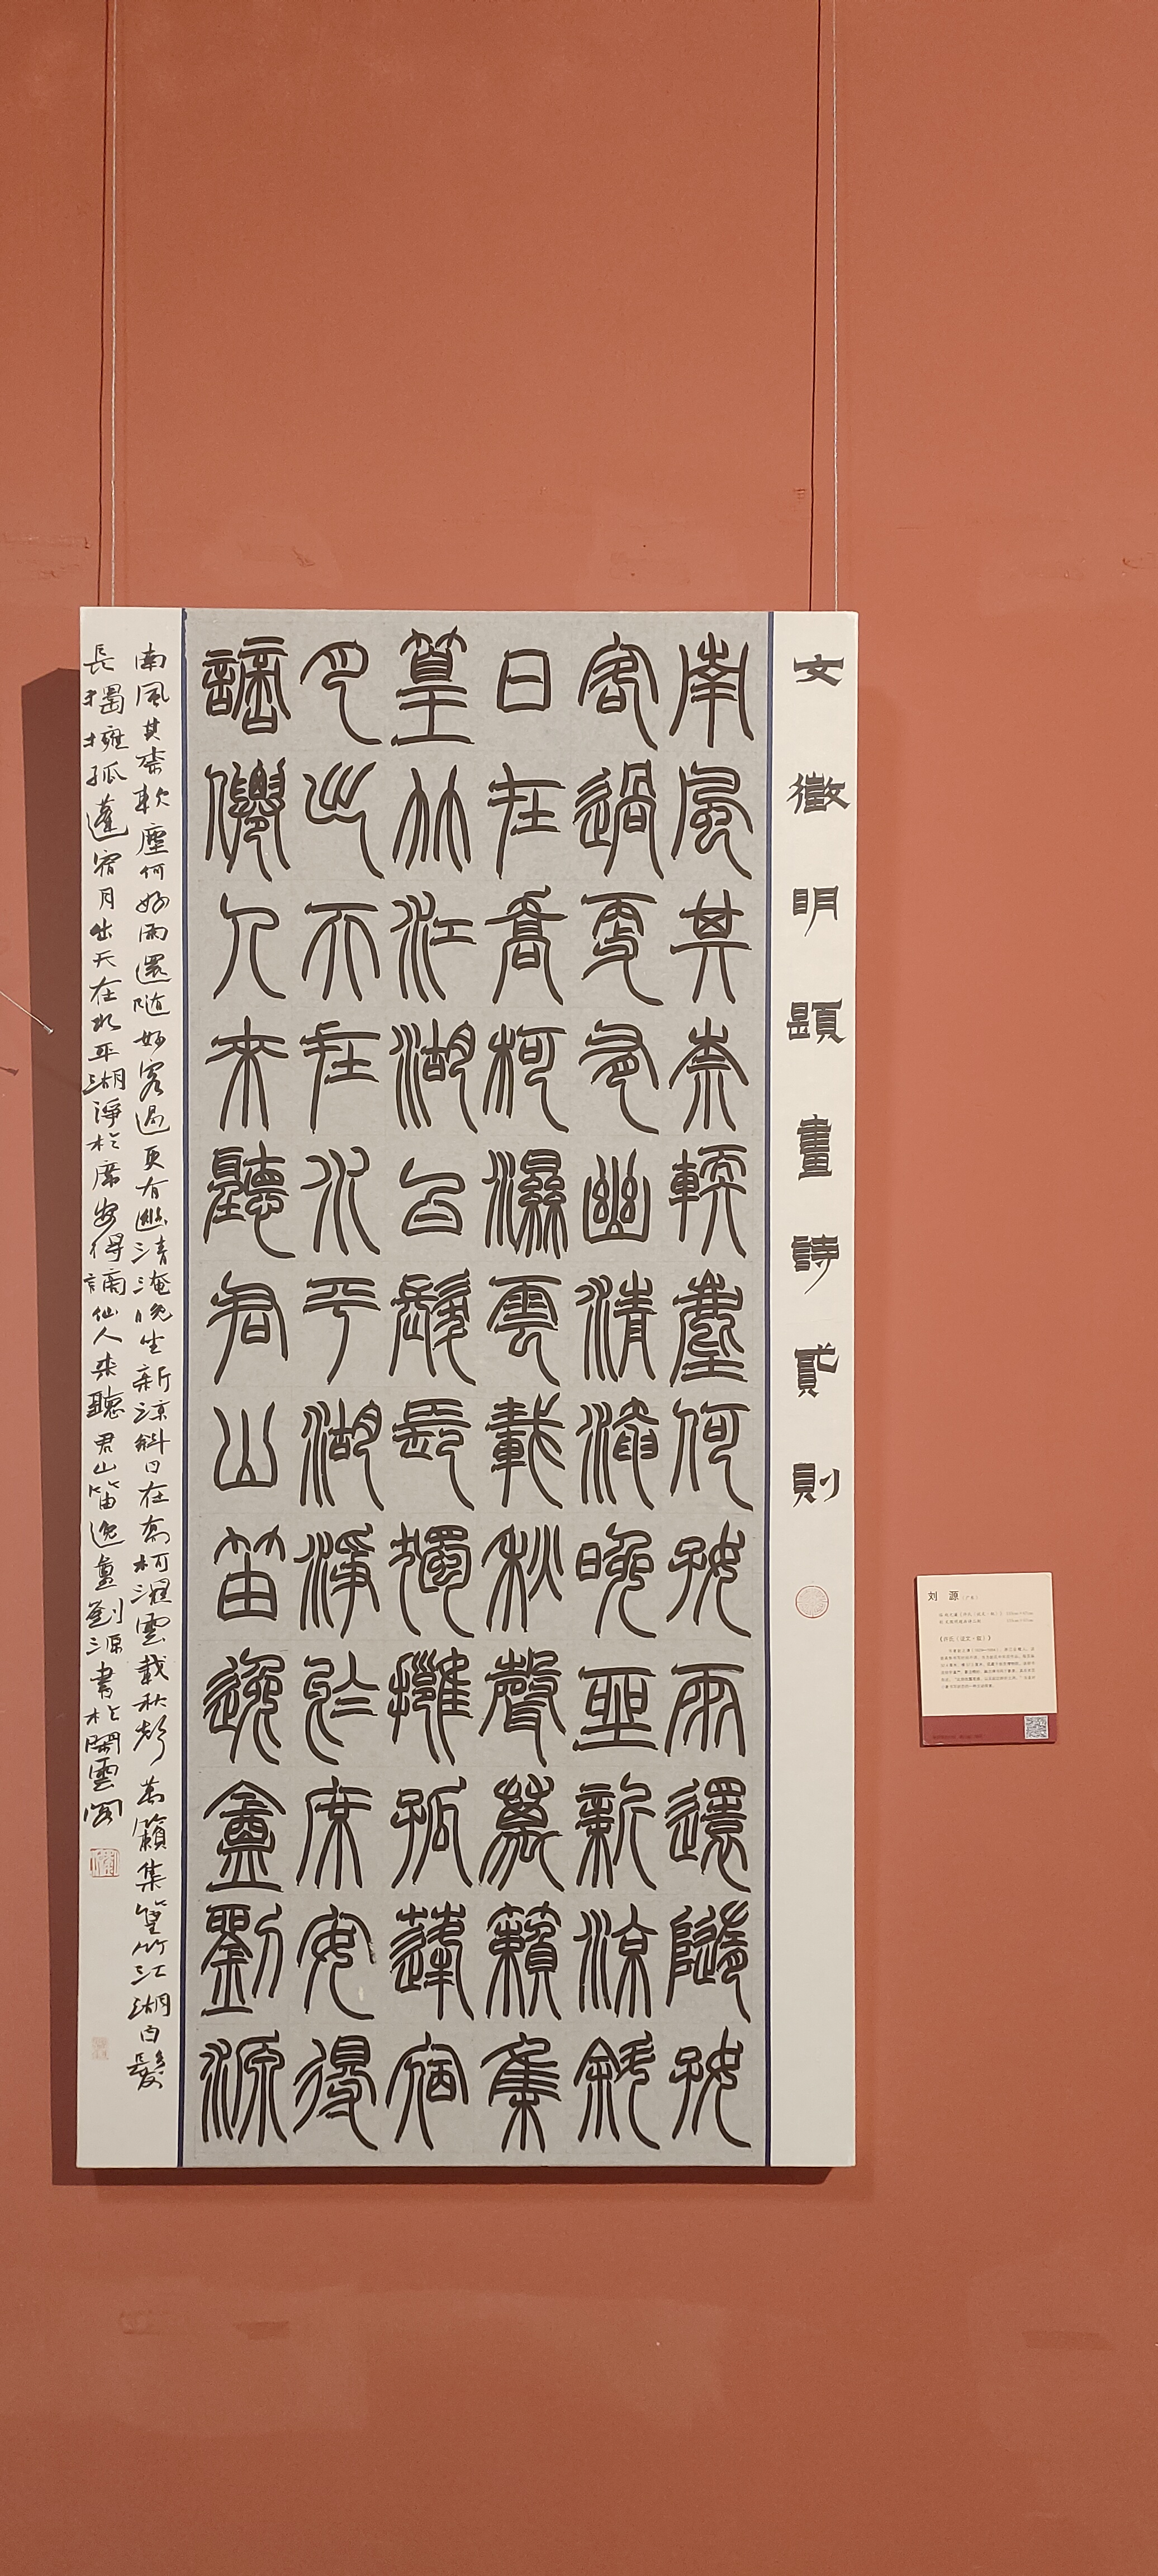 文徵明題畫詩貳則
南風其奈輭塵何好雨還隨好
客過更有幽清淹晚坐新涼斜
日在喬柯濕雲載秋聲萬籟集
篁竹江湖白髮長獨擁孤蓬宿
月出天在水平湖淨於席安得
謫僊人來聽君山笛逸盦劉源
南風其奈軟塵何好雨還隨好客過更有幽清淹晚坐新涼斜日在喬柯濕雲載秋聲萬籟集篁竹江湖白髮
長獨擁孤蓬宿月出天在水平湖淨於席安得謫仙人來聽君山笛逸盦劉源書於閑雲閣
刘 源